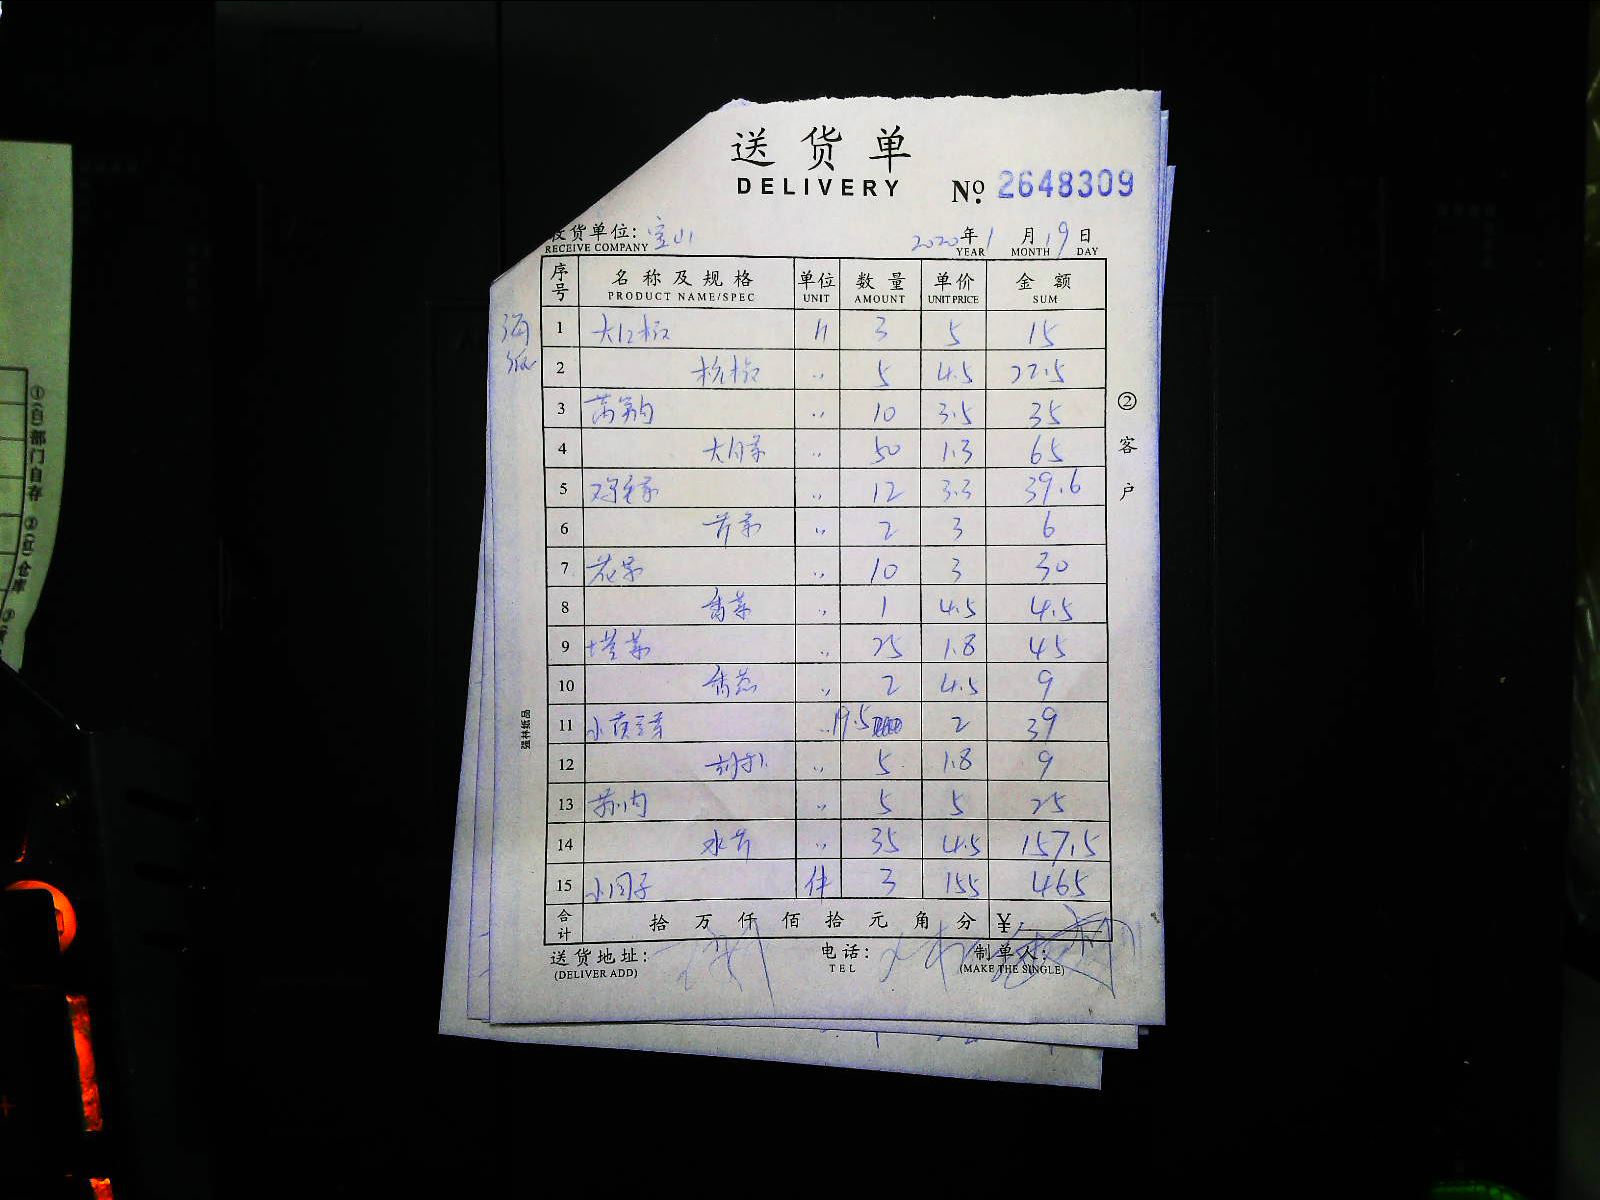 送货单
DELIVERY
№ 2648309
收货单位: 宝山 2020年1月19日
RECEIVE COMPANY YEAR MONTH DAY
序号 名称及规格 单位 数量 单价 金额
PRODUCT NAME/SPEC UNIT AMOUNT UNIT PRICE SUM
1 大红椒 斤 3 5 15
2 杭椒 〃 5 4.5 22.5
3 莴笋 〃 10 3.5 35
4 大白菜 〃 50 1.3 65
5 鸡毛菜 〃 12 3.3 39.6
6 芹菜 〃 2 3 6
7 花菜 〃 10 3 30
8 香菜 〃 1 4.5 4.5
9 塔菜 〃 25 1.8 45
10 香葱 〃 2 4.5 9
11 小黄豆芽 〃 19.5 2 39
12 〃 5 1.8 9
13 〃 5 5 25
14 水芹 〃 35 4.5 157.5
15 件 3 155 465
合计 拾万仟佰拾元角分 ¥:
送货地址: 电话: 制单人:
(DELIVER ADD) TEL (MAKE THE SINGLE)
②客户
强林纸品
①(白)部门自存 ②(红)仓库 ③